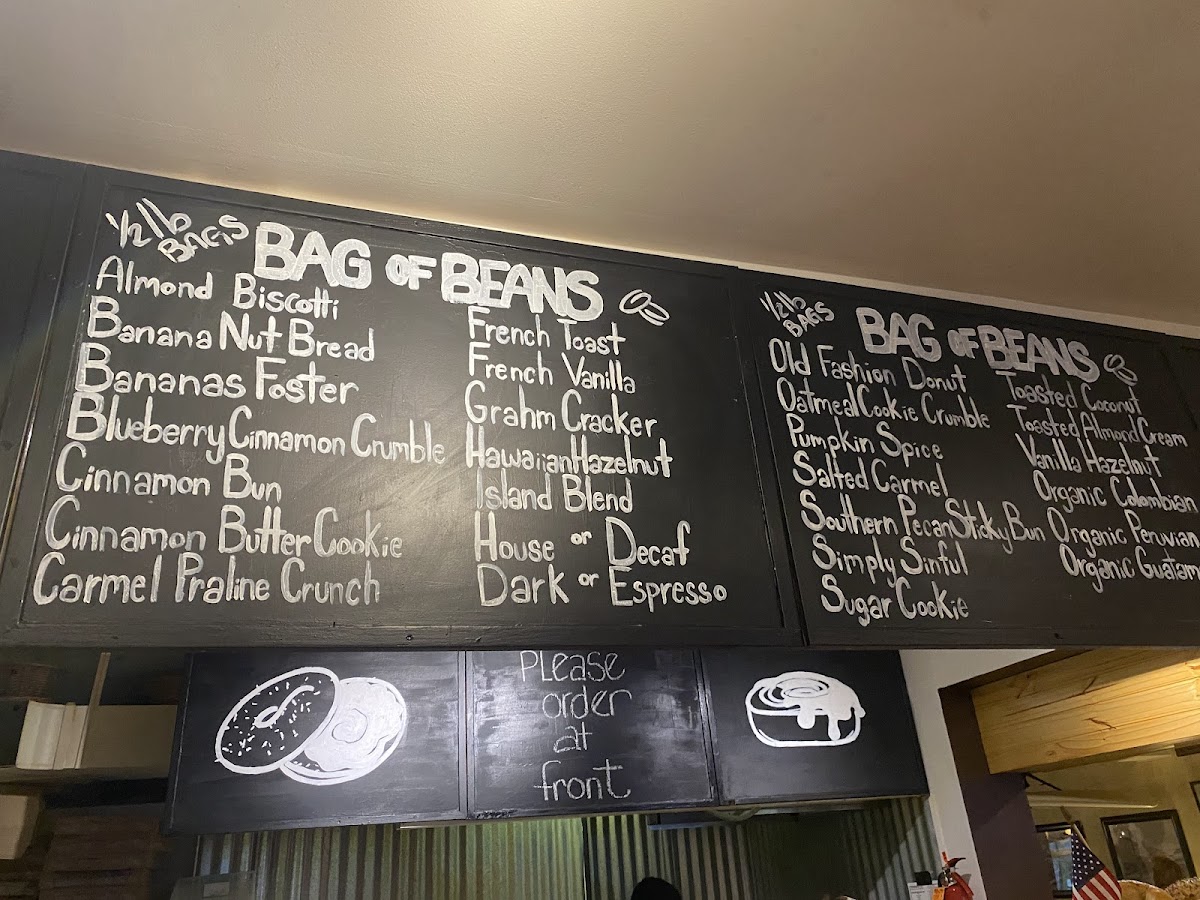 1/2 lb
BAGS
BAG OF BEANS
Almond Biscotti
Banana Nut Bread
Bananas Foster
Blueberry Cinnamon Crumble
Cinnamon Bun
Cinnamon Butter Cookie
Carmel Praline Crunch
French Toast
French Vanilla
Grahm Cracker
Hawaiian Hazelnut
Island Blend
House or Decaf
Dark or Espresso
1/2 lb
BAGS
BAG OF BEANS
Old Fashion Donut
Oatmeal Cookie Crumble
Pumpkin Spice
Salted Carmel
Southern Pecan Sticky Bun
Simply Sinful
Sugar Cookie
Toasted Coconut
Toasted Almond Cream
Vanilla Hazelnut
Organic Colombian
Organic Peruvian
Organic Guatam
Please
order
at
front